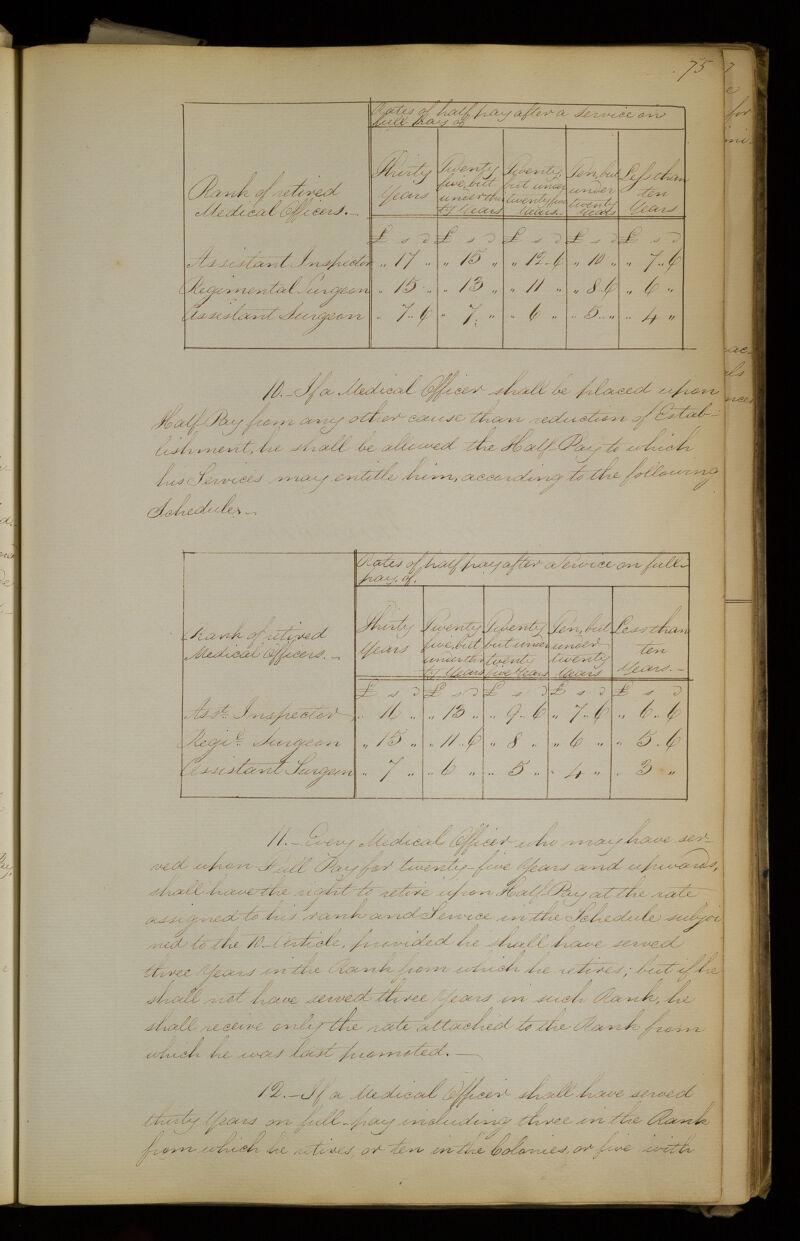 75
Rates of half pay after a service on
full Pay of
Rank of retired
Medical Officers.—
Thirty
Years
Twenty
five, but
under thir
ty Years
Twenty,
but under
twenty five
Years.
Ten, but
under
twenty
Years
Less than
ten
Years
£ s d £ s d £ s d £ s d £ s d
Assistant Inspector „ 17 „ „ 15 „ „ 12..6 „ 10 „ „ 7..6
Regimental Surgeon „ 15 „ „ 13 „ „ 11 „ „ 8.6 „ 6 „
Assistant Surgeon „ 7..6 „ 7. „ „ 6 „ „ 5.. „ „ 4 „
10.— If a Medical Officer shall be placed upon
Half Pay from any other cause than reduction of Estab-
lishment, he shall be allowed the Half Pay to which
his Services may entitle him, according to the following
Schedule.—
Rates of half pay after a Service on full-
pay, of.
Rank of retired
Medical Officers.—
Thirty
Years
Twenty
five, but
under thir
ty Years
Twenty
but under
twenty
five Years
Ten, but
under
twenty
Years
Less than
ten
Years.—
£ s d £ s d £ s d £ s d £ s d
Asst. Inspector „ 16 „ „ 13 „ „ 9..6 „ 7..6 „ 6..6
Regil. Surgeon „ 15 „ „ 11..6 „ 8 „ „ 6 „ „ 5.6
Assistant Surgeon „ 7 „ „ 6 „ „ 5 „ „ 4 „ „ 3 „
11.— Every Medical Officer who may have ser-
ved upon Full Pay for twenty-five Years and upwards,
shall have the right to retire upon Half-Pay at the rate
assigned to his rank and Service in the Schedule subjoi
ned to the 10— Article, provided he shall have served
three Years in the Rank from which he retires; but if he
shall not have served three Years in such Rank, he
shall receive only the rate attached to the Rank from
which he was last promoted.—
12.— If a Medical Officer shall have served
thirty Years on full-pay including three in the Rank
from which he retires, or ten in the Colonies, or five with